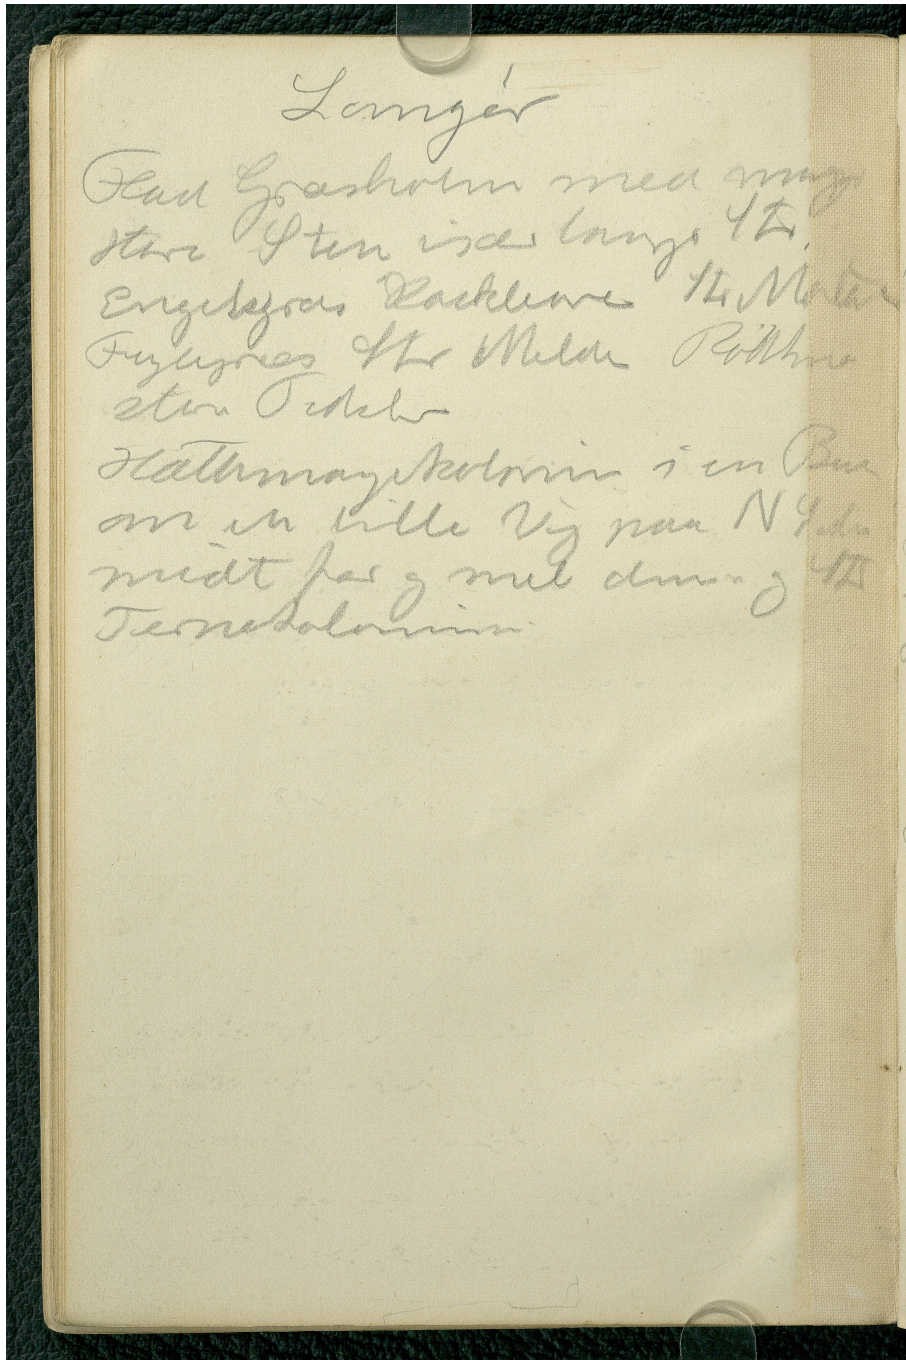 Langør
Flad Græsholm med mange
store Sten især langs Str.
Engelsgræs Hockleare Str. Malta
Fuglegræs Str Melde
store Tidsler
Hættemaagekolonien i en Bue
om en lille Vig paa N Side
midt for og mel dem og Str
Ternekolonien.